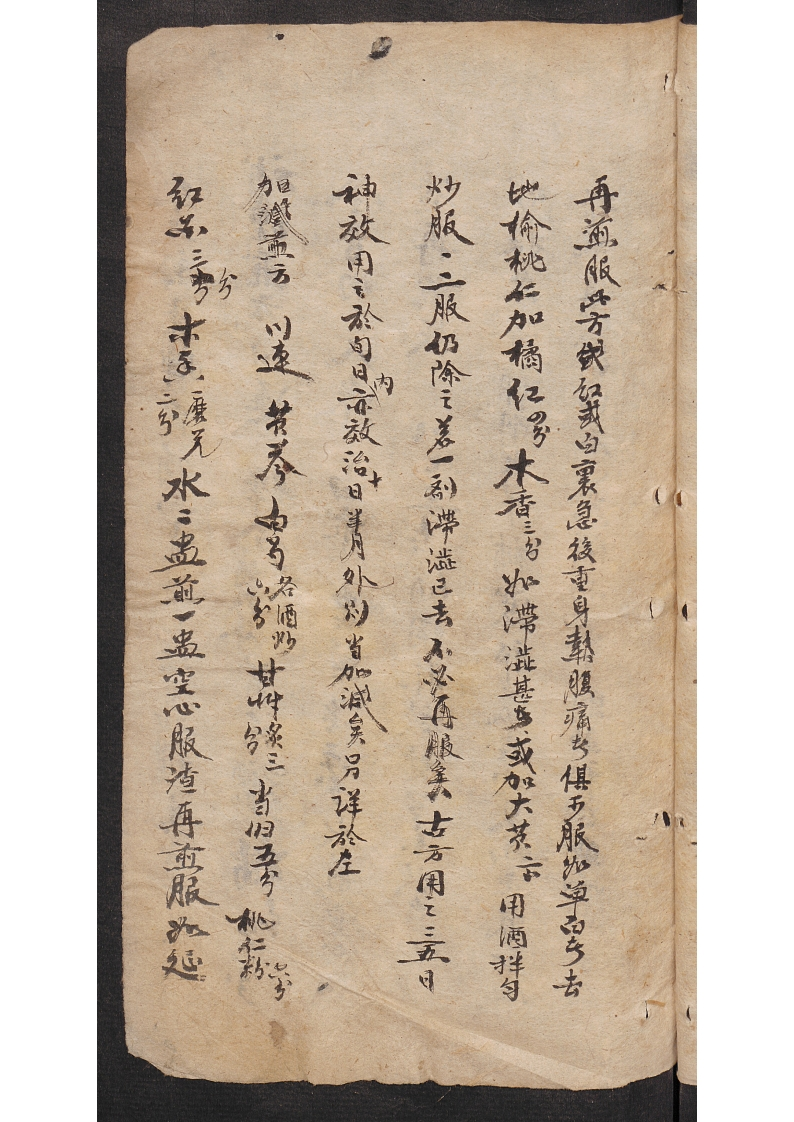 再煎服此方或紅或白裏急後重身熱腹痛者俱可服如單白者去
地榆桃仁加橘紅四分木香三分如滯澁甚者或加大黃 用酒拌勻
炒服一二服仍除之若一劑滯澁已去不必再服矣古方用之三五日
神效用之於旬日內亦效治十日半月外則當加減矣另詳於左
加減煎方 川連 苓 白芍各酒炒六分 甘艸炙三分 當归五分 桃仁粉六分
紅 三分 木香二分磨兑 水二盅煎一盅空心服渣再煎服如延